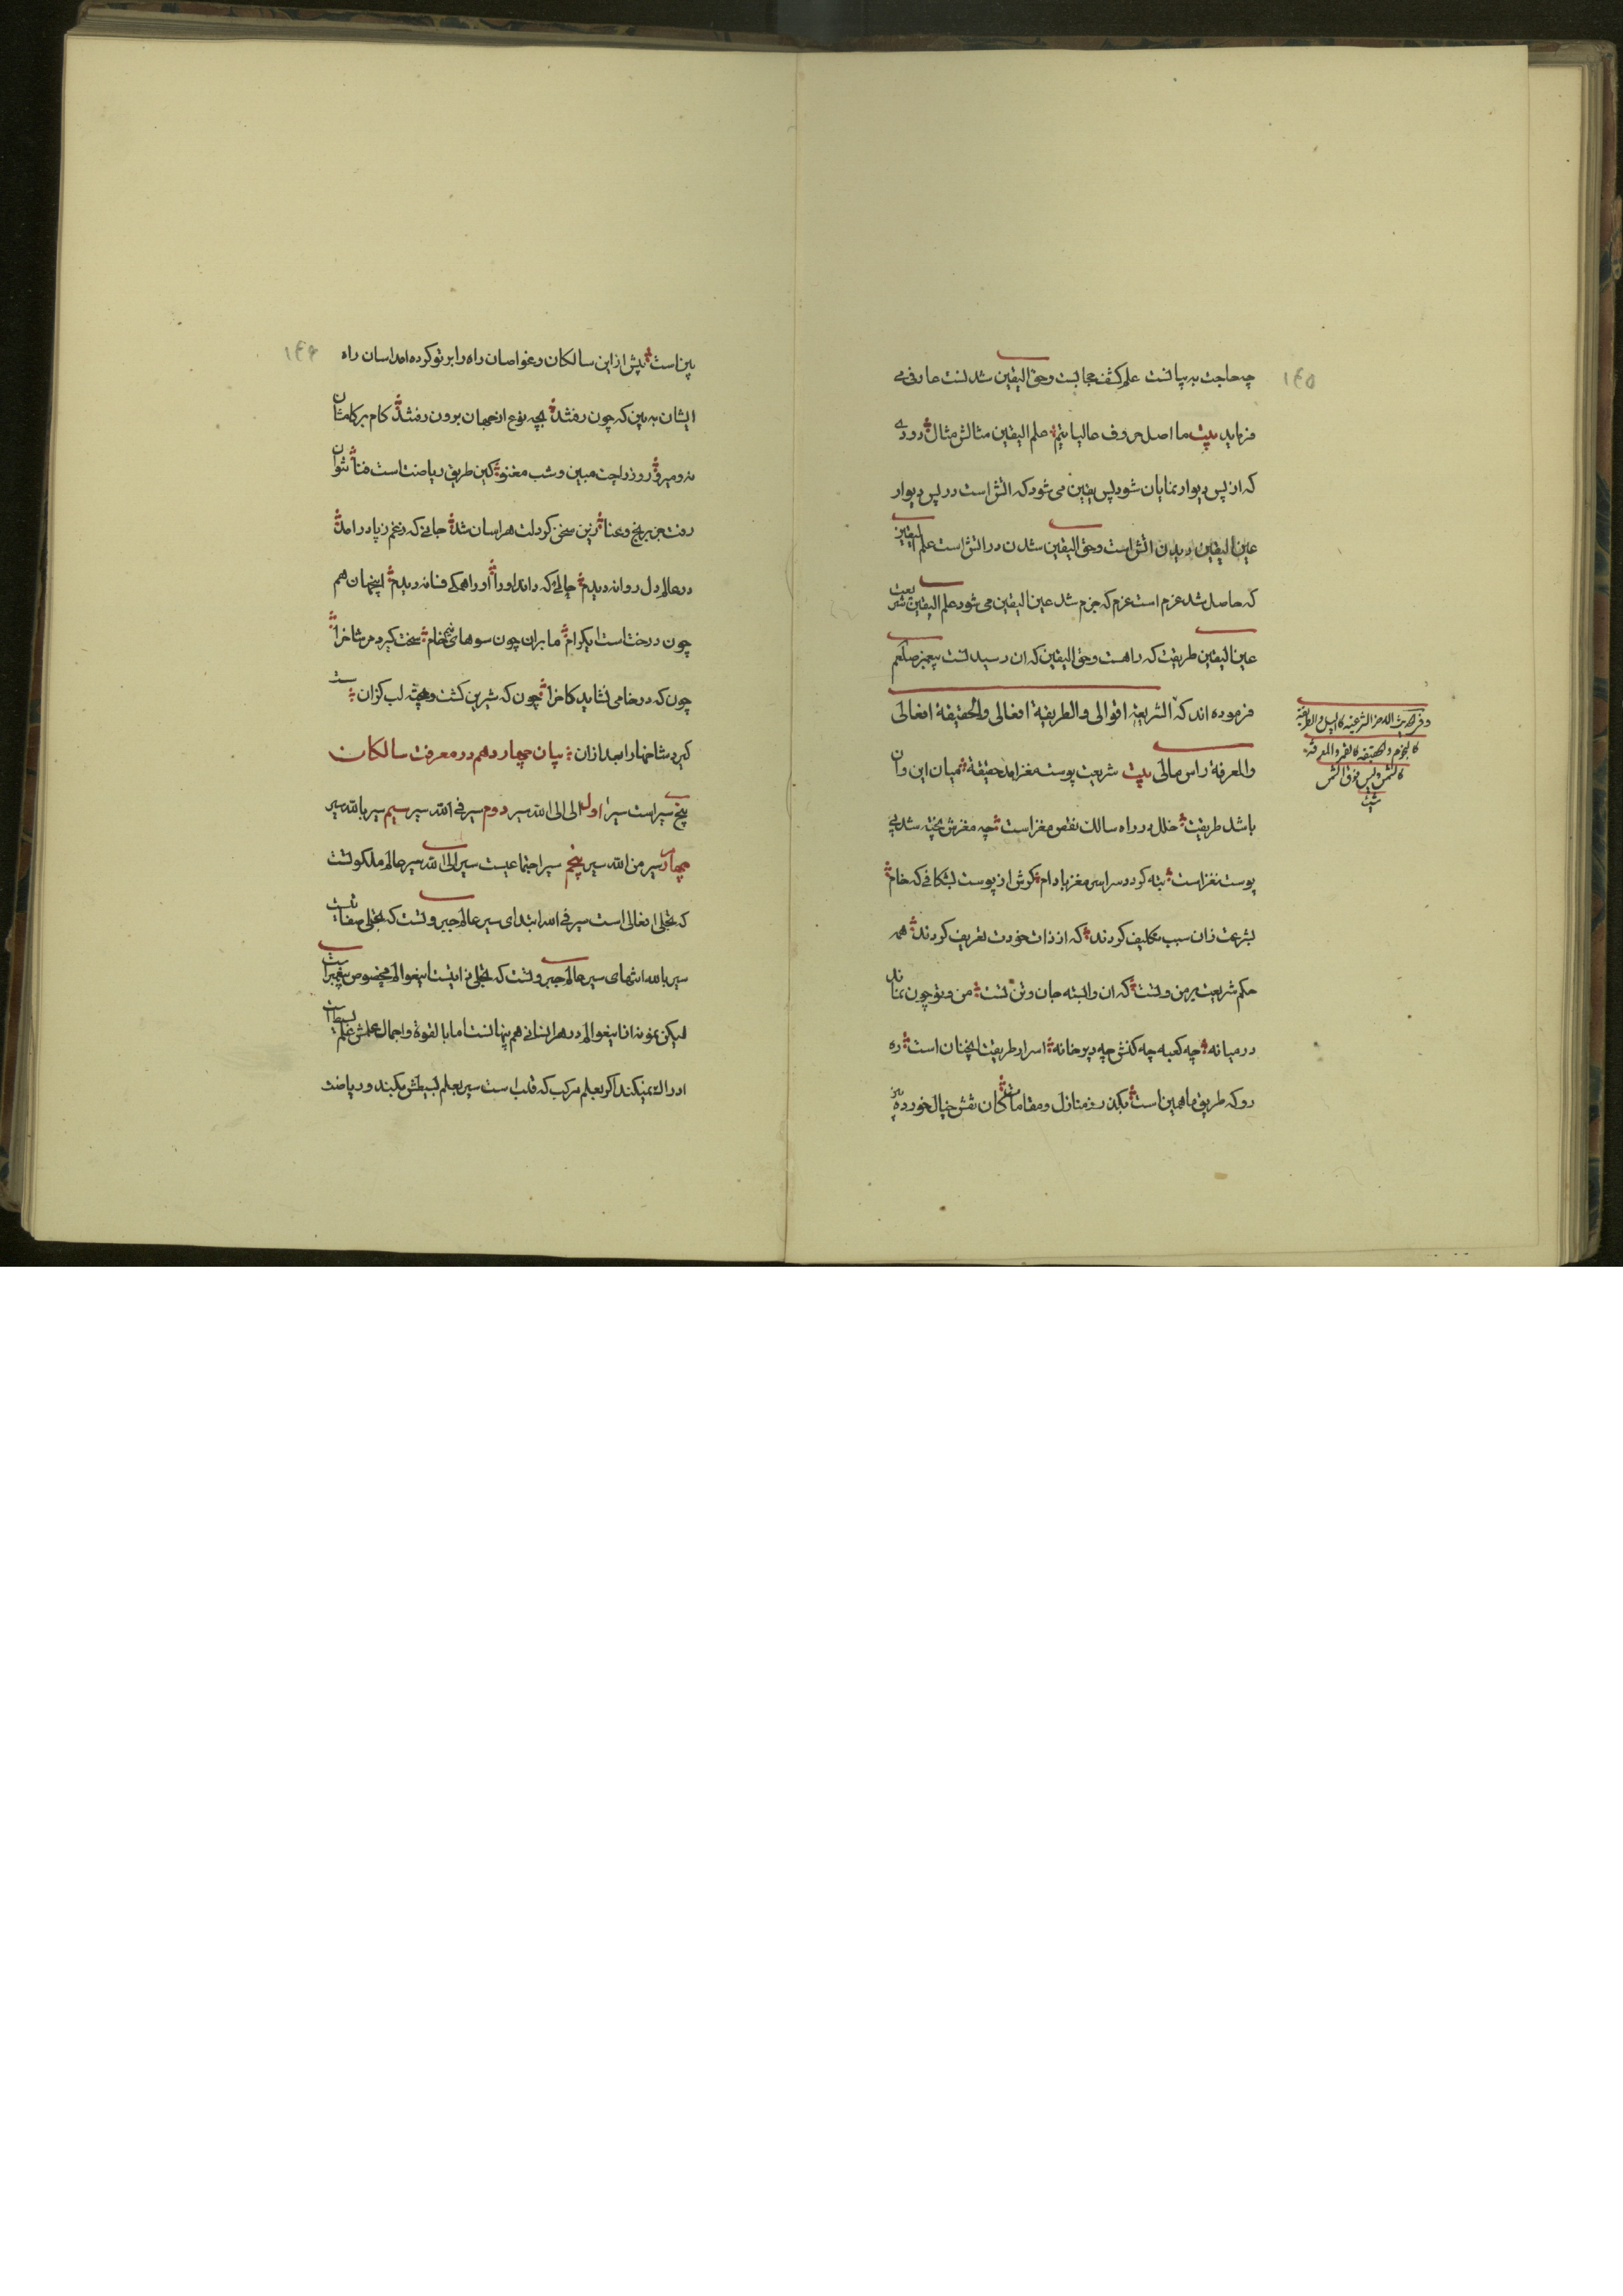 ١٤٥
چه حاجت به بیانست علم کشف حجابست وحق الیقین شدنست عارفی می
فرماید بیت ما اصل حروف عالیاتیم علم الیقین مثالش مثال دودی
که از پس دیوار نمایان شود پس یقین می شود که اتش است در پس دیوار
عین الیقین دیدن اتش است وحق الیقین شدن در اتش است علم الیقین
که حاصل شد عزم است عزم که جزم شد عین الیقین می شود علم الیقین شریعت
عین الیقین طریقت که راهست وحق الیقین که ان رسیدنست پیغمبر صلعم
فرموده اند که الشریعة اقوالی والطریقة افعالی والحقیقة افعالی
والمعرفة راس مالی بیت شریعت پوست مغز امد حقیقة میان این وان
باشد طریقت خلل در راه سالک نقص مغز است چه مغزش پخته شد بی
پوست نغز است تبه کردد سراسر مغز بادام کرش از پوست بشکافی که خام
بشریعت زان سبب تکلیف کردند که از ذات خودت تعریف کردند همه
حکم شریعت بر من وتست که ان وابسته جان وتن تست من وتو چون نماند
در میانه چه کعبه چه کنش چه دیر خانه اسرار طریقت انچنان است ره
رو که طریق ما همین است بکذر ز منازل ومقامات کان نقش خیال خورده
وفی الحدیث الشریعة کاللیل والطریقة
کالنجوم والحقیقة کالقمر والمعرفة
کالشمس ولیس فوق الشمس
شیئ
١٤٦
بین است پیش از این سالکان وغواصان راه را بر تو کرده اند اسان راه
ایشان به بین که چون رفتند بچه نوع از جهان برون رفتند کام بر کامشان
نه ومیرو روز راحت مبین وشب مغنو کین طریق ریاضت است فنا نتوان
رفت جز برنج وعنا زین سخن کر دلت هراسان شد جانی که زغم ز پا در امد
در عالم دل روانه دیدم حالی که داند اورا اورا همکی فسانه دیدم اینجهان هم
چون درختاست ایکرام ما بران چون سوهای نیم خام سخت کیرد مر شاخرا
چون که در خامی نشاید کاخرا چون که شیرین کشت وپخته لب کزان
کیرد شاخهارا بعد ازان بیان چهاردهم در معرفت سالکان
پنج سیراست سیر اول الی الی الله سیر دوم سیر فی الله سیر سیم سیر بالله سیر
چهارم سیر من الله سیر پنجم سیر اجتماعیست سیر الی الله سیر عالم ملکوتست
که تجلی افعالی است سیر فی الله ابتدای سیر عالم جبروتست که تجلی صفاتیست
سیر بالله انتهای سیر عالم جبروتست که تجلی ذاتیست اینعوالم مخصوص پیغمبرانست
لیکن نمونه از اینعوالم در هر انسانی هم پنهانست اما بالقوة واجمال علمش علم بسیط است
ادراک نمیکند اکر بعلم مرکب که قلب است سیر بعلم بسیطش بکند وریاضت